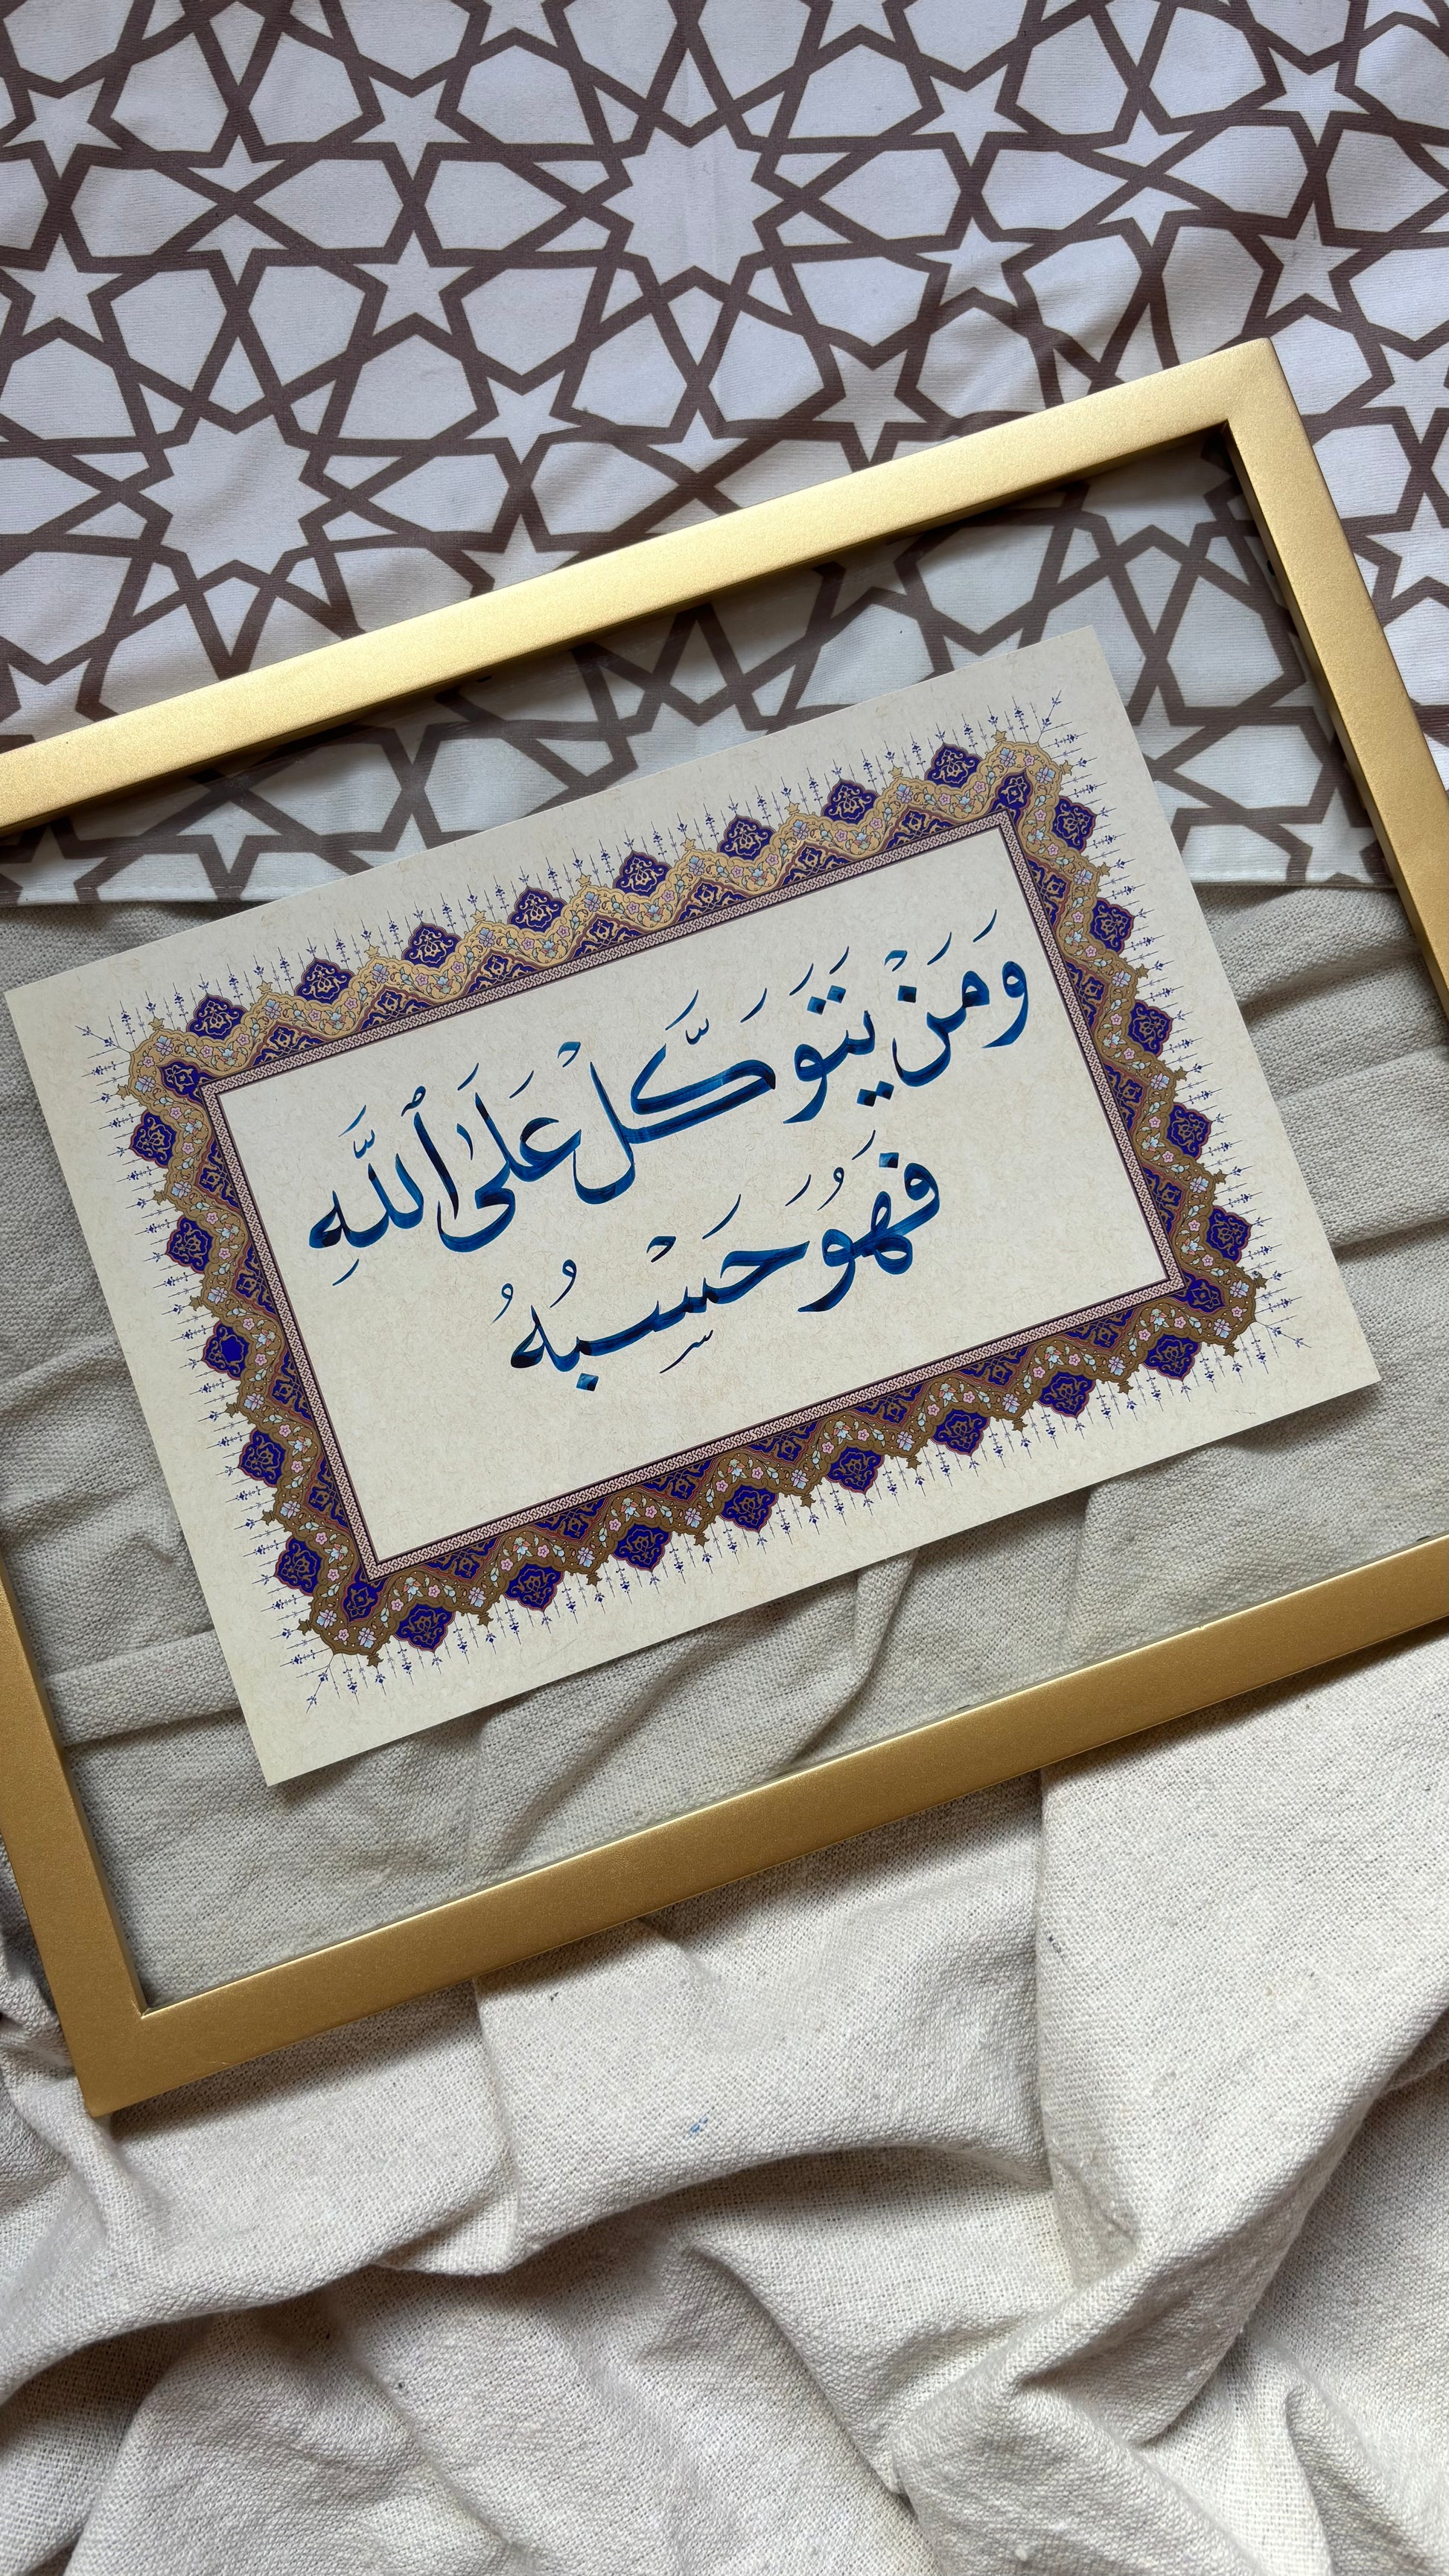 وَمَنْ يَتَوَكَّلْ عَلَى ٱللَّهِ
فَهُوَ حَسْبُهُ